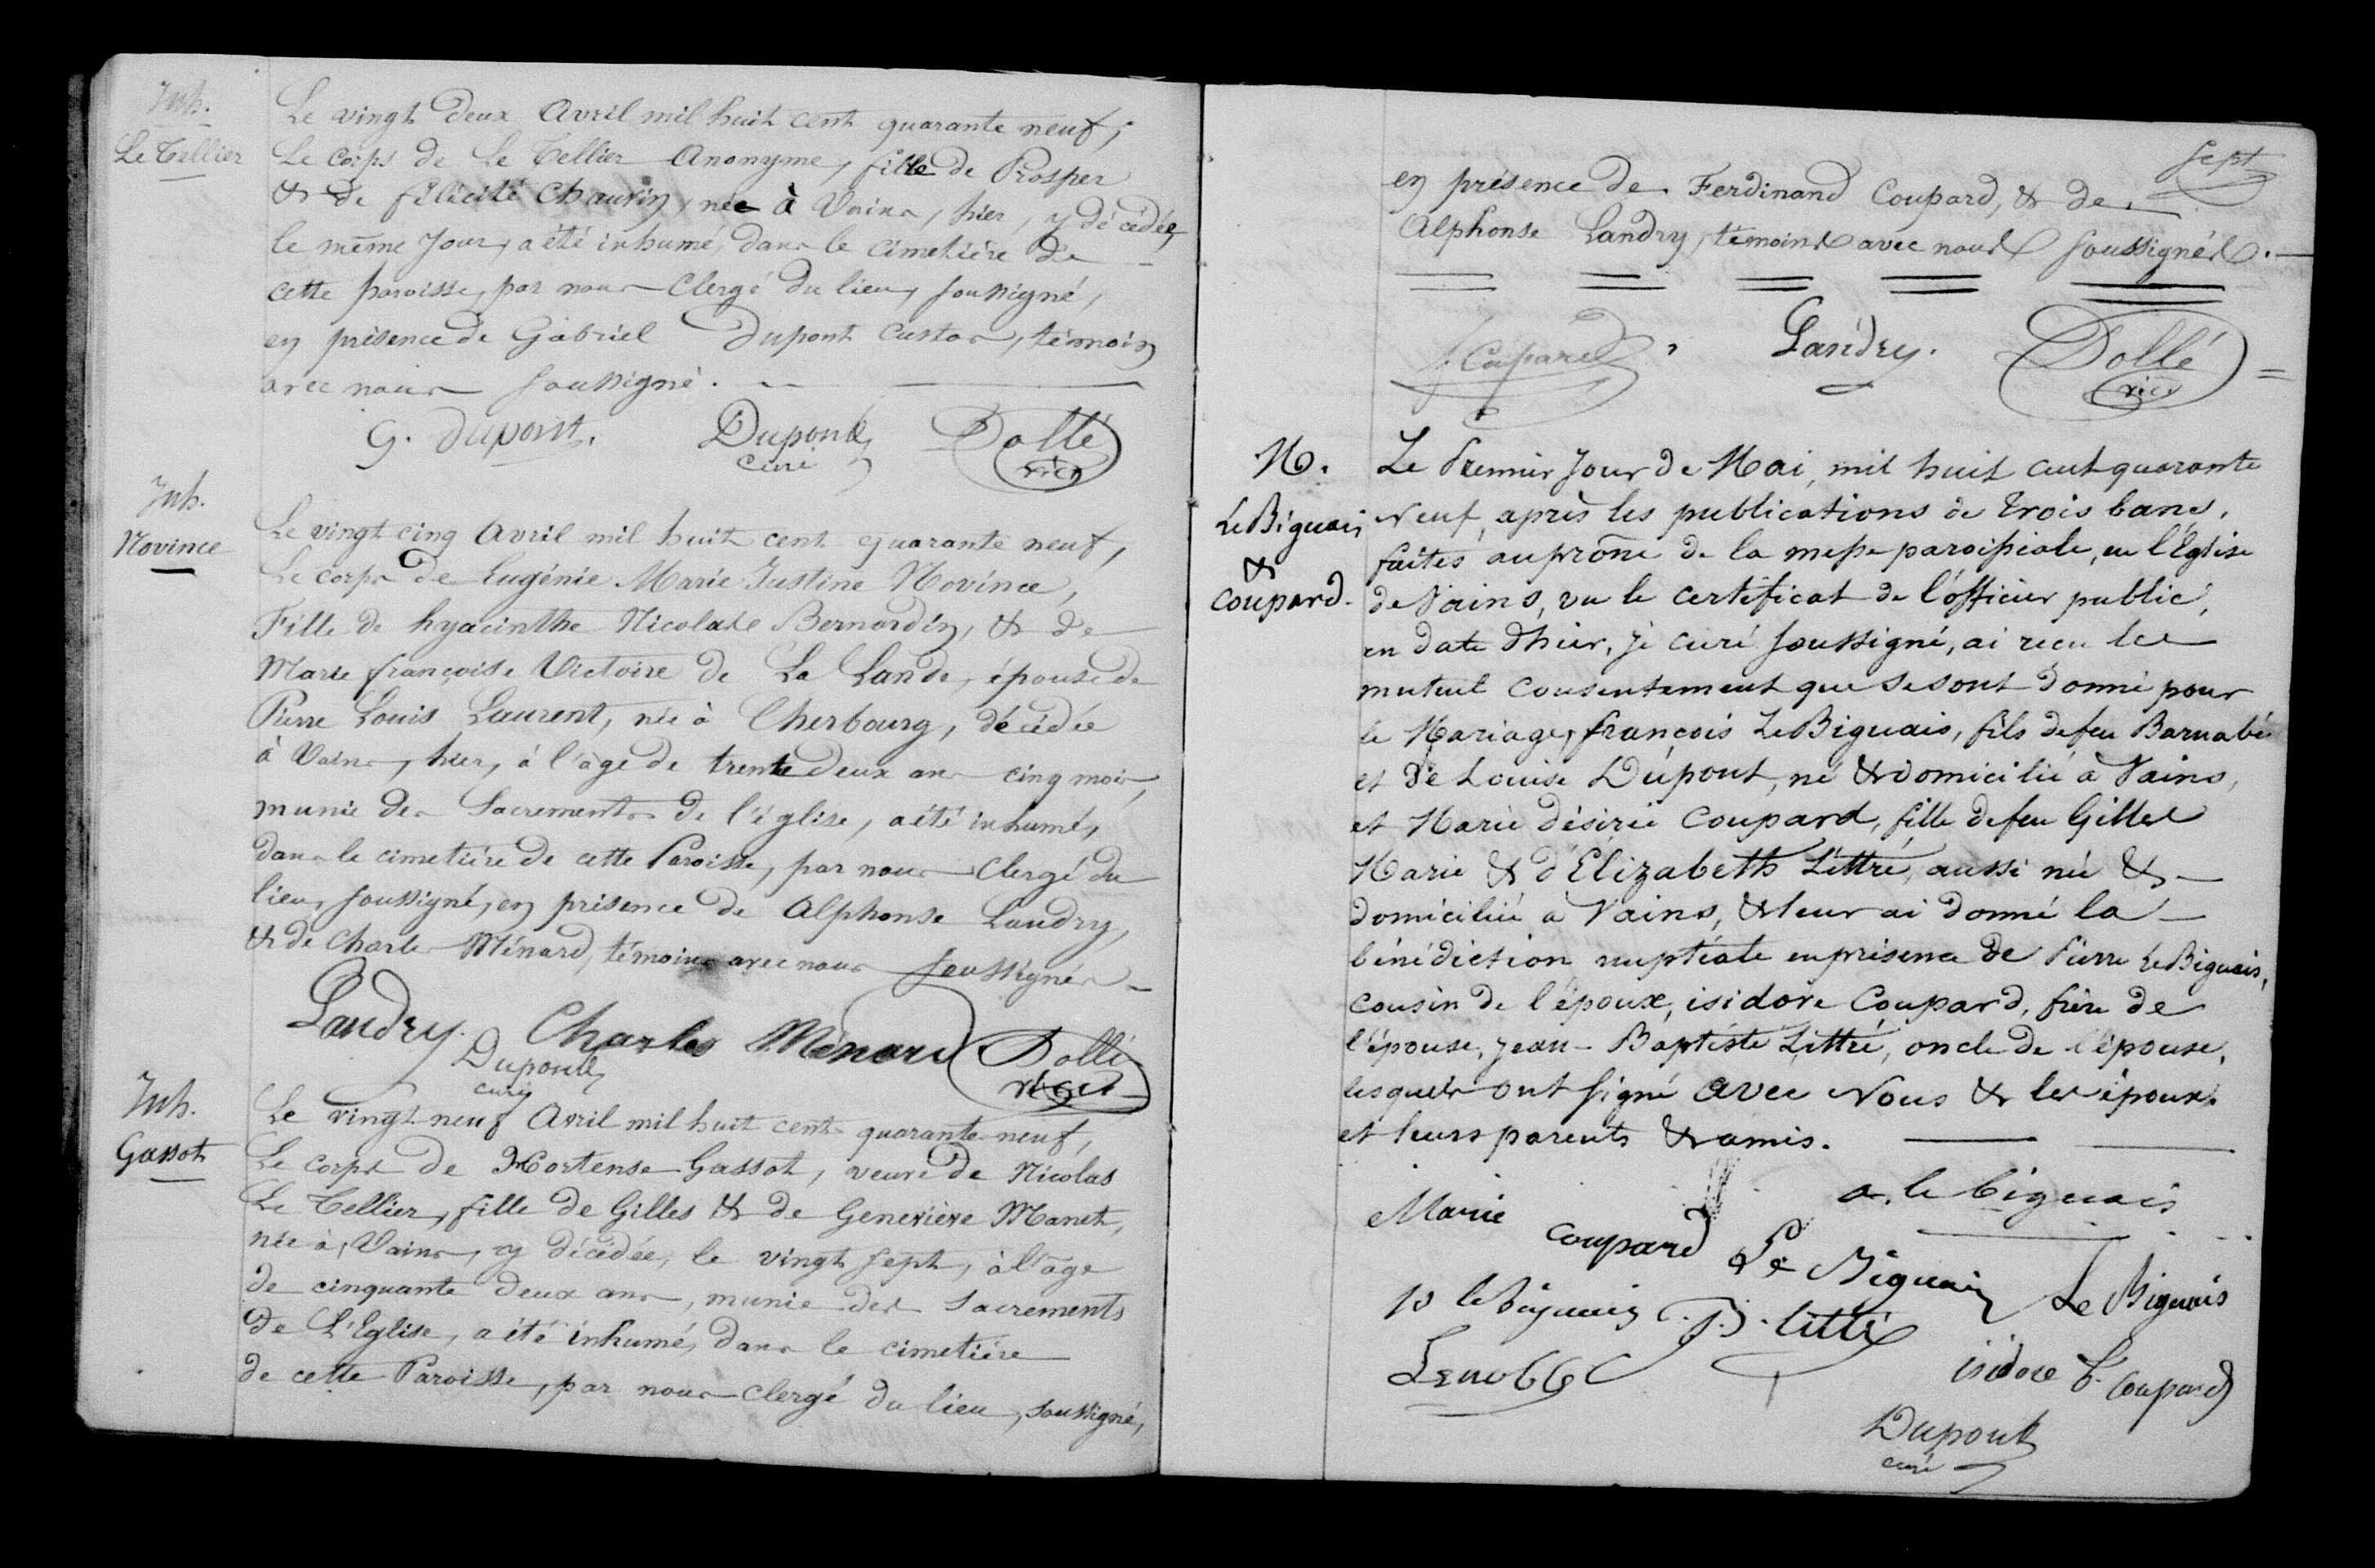 Inh.
Le Tellier
Le vingt deux Avril mil huit cent quarante neuf,
Le Corps de Le Tellier Anonyme, fille de Prosper
& de félicité Chauvin, née à Vains, hier, y décédée
le même jour, a été inhumé, dans le cimetière de
cette paroisse, par nous Clergé du lieu, soussigné,
en présence de Gabriel Dupont custos, témoin
avec nous soussigné.
G. dupont. Dupont Dollé
curé vicr
Inh.
Novince
Le vingt cinq Avril mil huit cent quarante neuf,
Le corps de Eugénie Marie Justine Novince,
Fille de hyacinthe Nicolase Bernardin, & de
Marie françoise Victoire de La Lande, épouse de
Pierre Louis Laurent, née à Cherbourg, décédée
à Vains, hier, à l'âge de trente deux ans cinq mois,
munie des Sacrements de l'église, a été inhumé,
dans le cimetière de cette Paroisse, par nous Clergé du
lieu, soussigné, en présence de Alphonse Landry,
& de Charles Ménard, témoins avec nous soussignés
Landry. Charles Ménard Dollé
Dupont vicr
curé
Inh.
Gassot
Le vingt neuf Avril mil huit cent quarante neuf,
Le corps de Hortense Gassot, veuve de Nicolas
Le Tellier, fille de Gilles & de Geneviève Manet,
née à Vains, y décédée, le vingt sept, à l'âge
de cinquante deux ans, munie des Sacrements
de L'Eglise, a été inhumé, dans le cimetière
de cette Paroisse, par nous clergé du lieu, soussigné,
sept
en présence de Ferdinand Coupard, & de
Alphonse Landry, témoins avec nous soussignés.
f. Coupard Landry. Dollé
vicr
M.
LeBiguais
&
Coupard.
Le Premier Jour de Mai, mil huit cent quarante
Neuf, après les publications de trois bans,
faites au prône de la messe paroissiale, en l'Eglise
de Vains, vu le certificat de l'officier public,
en date d'hier, je curé soussigné, ai reçu le
mutuel consentement que se sont donné pour
le Mariage, françois LeBiguais, fils de feu Barnabé
et de Louise Dupont, né & domicilié à Vains,
et Marie désirée Coupard, fille de feu Gilles
Marie & d'Elizabeth Littré, aussi née &
domiciliée à Vains, & leur ai donné la
bénédiction nuptiale en présence de Pierre LeBiguais,
cousin de l'époux, isidore Coupard, frère de
l'épouse, Jean-Baptiste Littré, oncle de l'épouse,
lesquels ont signé avec Nous & les époux
et leurs parents & amis.
Marie coupard a. le biguais
Le Biguais Le Biguais
p le biguais J.B. littré
Lenoble isidore C. Coupard
Dupont
curé